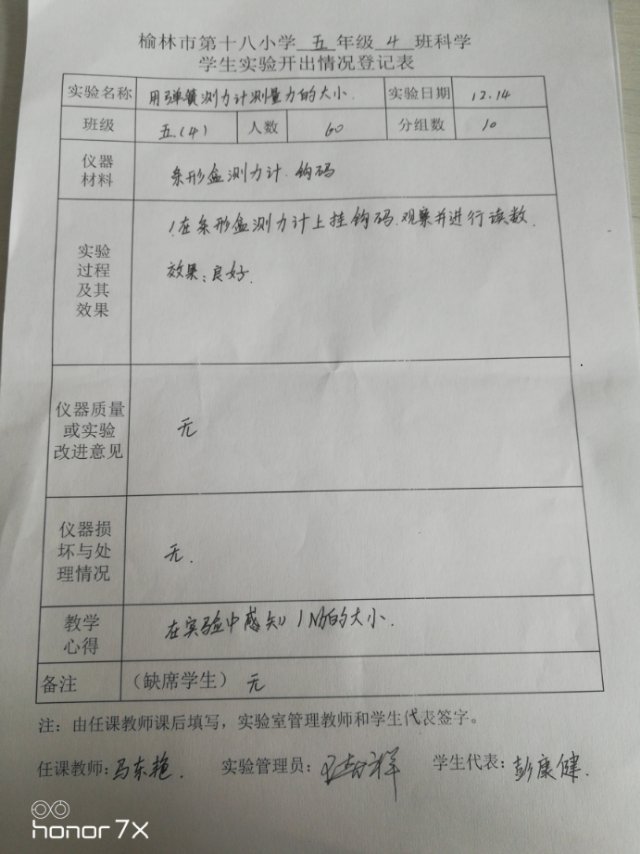 榆林市第十八小学 五 年级 4 班科学
学生实验开出情况登记表
实验名称 用弹簧测力计测量力的大小. 实验日期 12.14
班级 五.(4) 人数 60 分组数 10
仪器
材料
条形盒测力计.钩码
实验
过程
及其
效果
1.在条形盒测力计上挂钩码.观察并进行读数.
效果:良好.
仪器质量
或实验
改进意见
无
仪器损
坏与处
理情况
无.
教学
心得
在实验中感知1N的的大小.
备注 (缺席学生) 无
注：由任课教师课后填写，实验室管理教师和学生代表签字。
任课教师:马东艳. 实验管理员: 学生代表:彭康健.
honor 7X